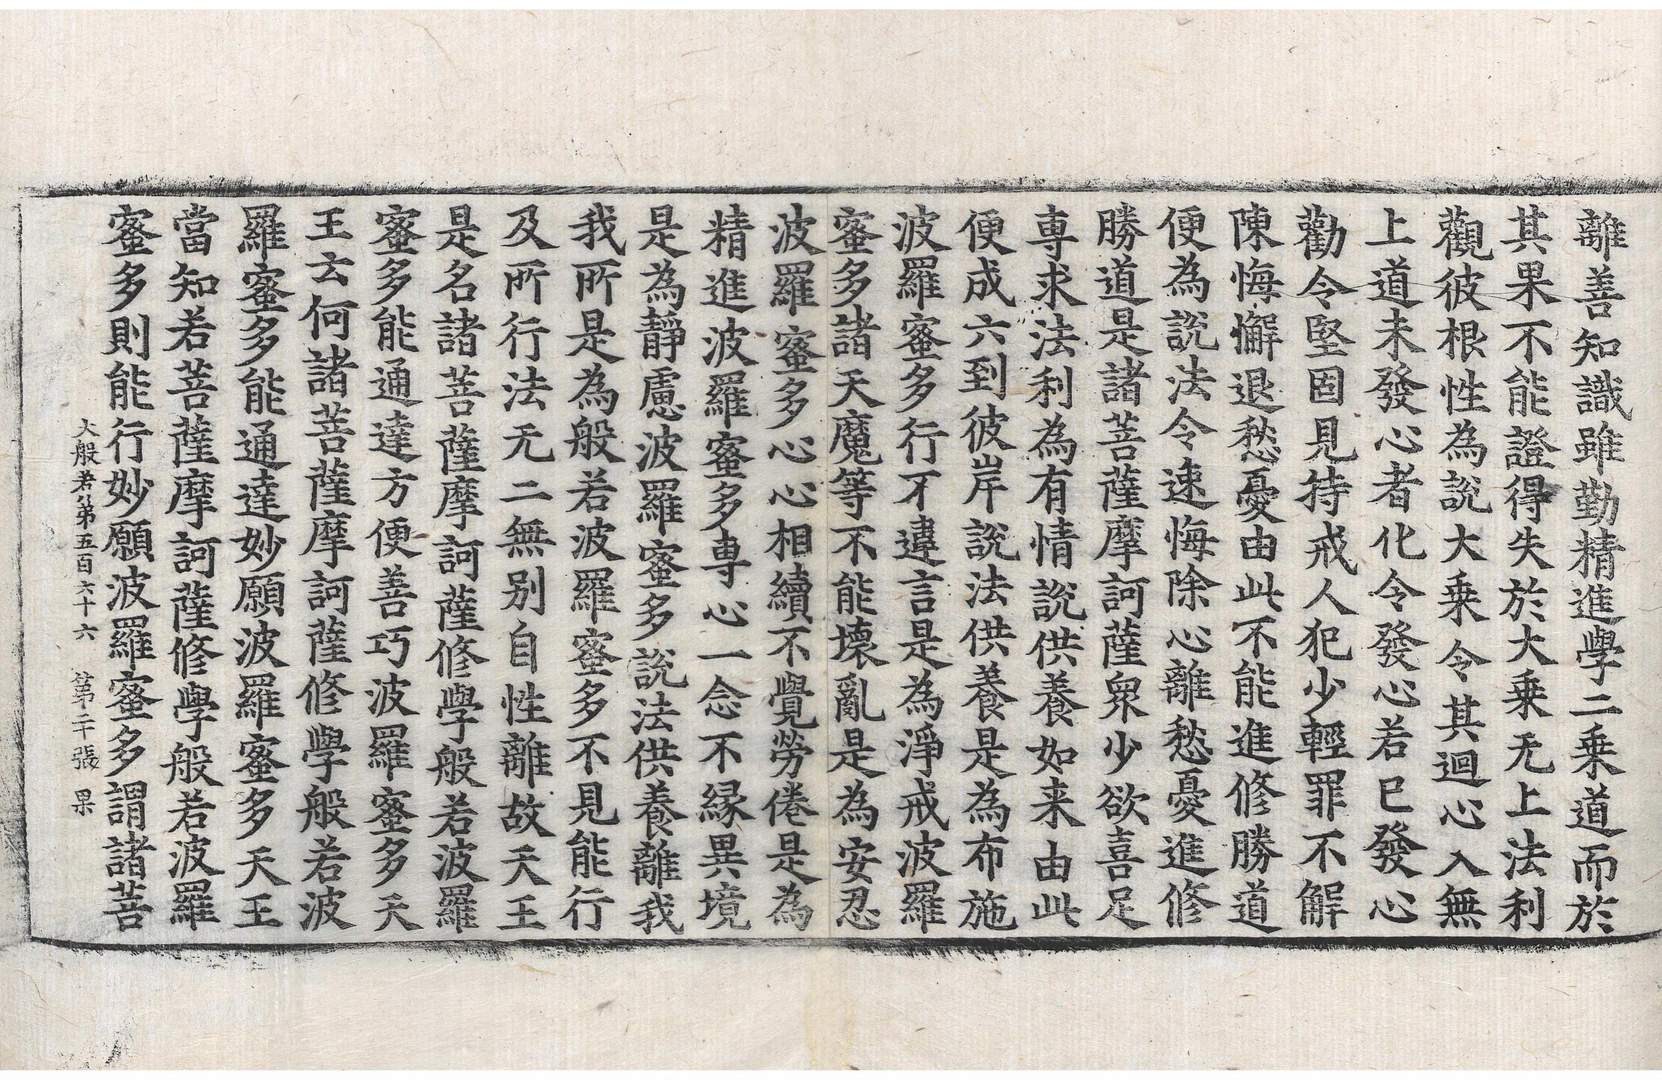 離善知識雖勤精進學二乘道而於
其果不能證得失於大乘无上法利
觀彼根性為說大乘令其迴心入無
上道未發心者化令發心若已發心
勸令堅固見持戒人犯少輕罪不解
陳悔懈退愁憂由此不能進修勝道
便為說法令速悔除心離愁憂進修
勝道是諸菩薩摩訶薩衆少欲喜足
專求法利為有情說供養如来由此
便成六到彼岸說法供養是為布施
波羅蜜多行不違言是為淨戒波羅
蜜多諸天魔等不能壞亂是為安忍
波羅蜜多心心相續不覺勞倦是為
精進波羅蜜多專心一念不緣異境
是為靜慮波羅蜜多說法供養離我
我所是為般若波羅蜜多不見能行
及所行法无二無別自性離故天王
是名諸菩薩摩訶薩修學般若波羅
蜜多能通達方便善巧波羅蜜多天
王云何諸菩薩摩訶薩修學般若波
羅蜜多能通達妙願波羅蜜多天王
當知若菩薩摩訶薩修學般若波羅
蜜多則能行妙願波羅蜜多謂諸菩
大般若第五百六十六 第二十張 果